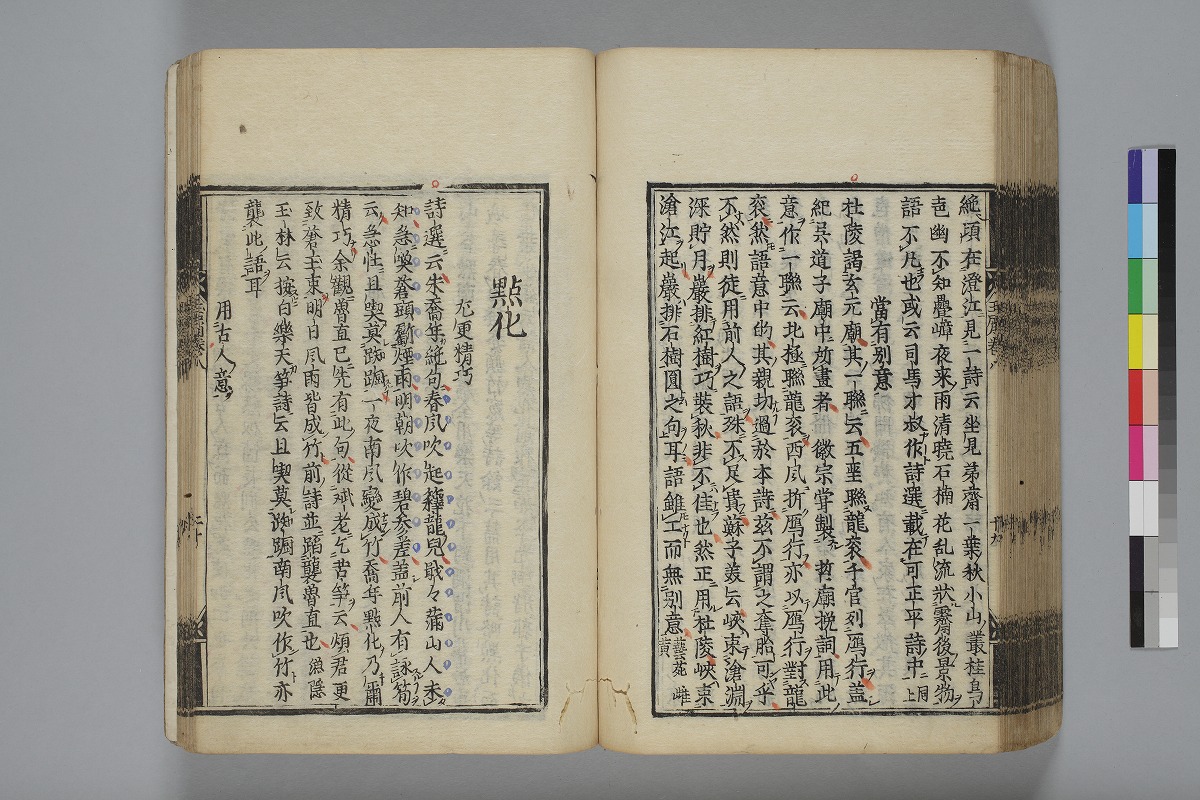 絶頂在澄江見一詩云坐見茅齋一葉秋小山叢桂鳥
邑幽不知疊嶂夜來雨清曉石楠花亂流狀霽後景物
語不凡也或云司馬才叔作詩選載在可正平詩中同上
當有別意
杜陵謁玄元廟其一聯云五聖聯龍袞千官列鴈行蓋
紀吳道子廟中所畫者徽宗嘗製哲廟挽詞用此
意作一聯云北極聯龍袞西風折鴈行亦以鴈行對龍
袞然語意中的其親切過於本詩茲不謂之奪胎可乎
不然則徒用前人之語殊不足貴蘇子美云峽束滄淵
深貯月巖排紅樹巧裝秋非不佳也然正用杜陵峽束
滄江起巖排石樹圓之句耳語雖工而無別意藝苑雌黃
點化
尤更精巧
詩選云朱喬年絶句春風吹起籜龍兒戢々滿山人未
知急喚蒼頭斸煙雨明朝吹作碧參差蓋前人有詠筍
云急性且喫莫踟躕一夜南風變成竹喬年點化乃爾
精巧余觀魯直已先有此句從斌老乞苦筍云煩君更
致蒼玉束明日風雨皆成竹前詩並蹈襲魯直也漁隱
玉林云按白樂天筍詩云且喫莫踟躕南風吹作竹亦
襲此語耳
用古人意